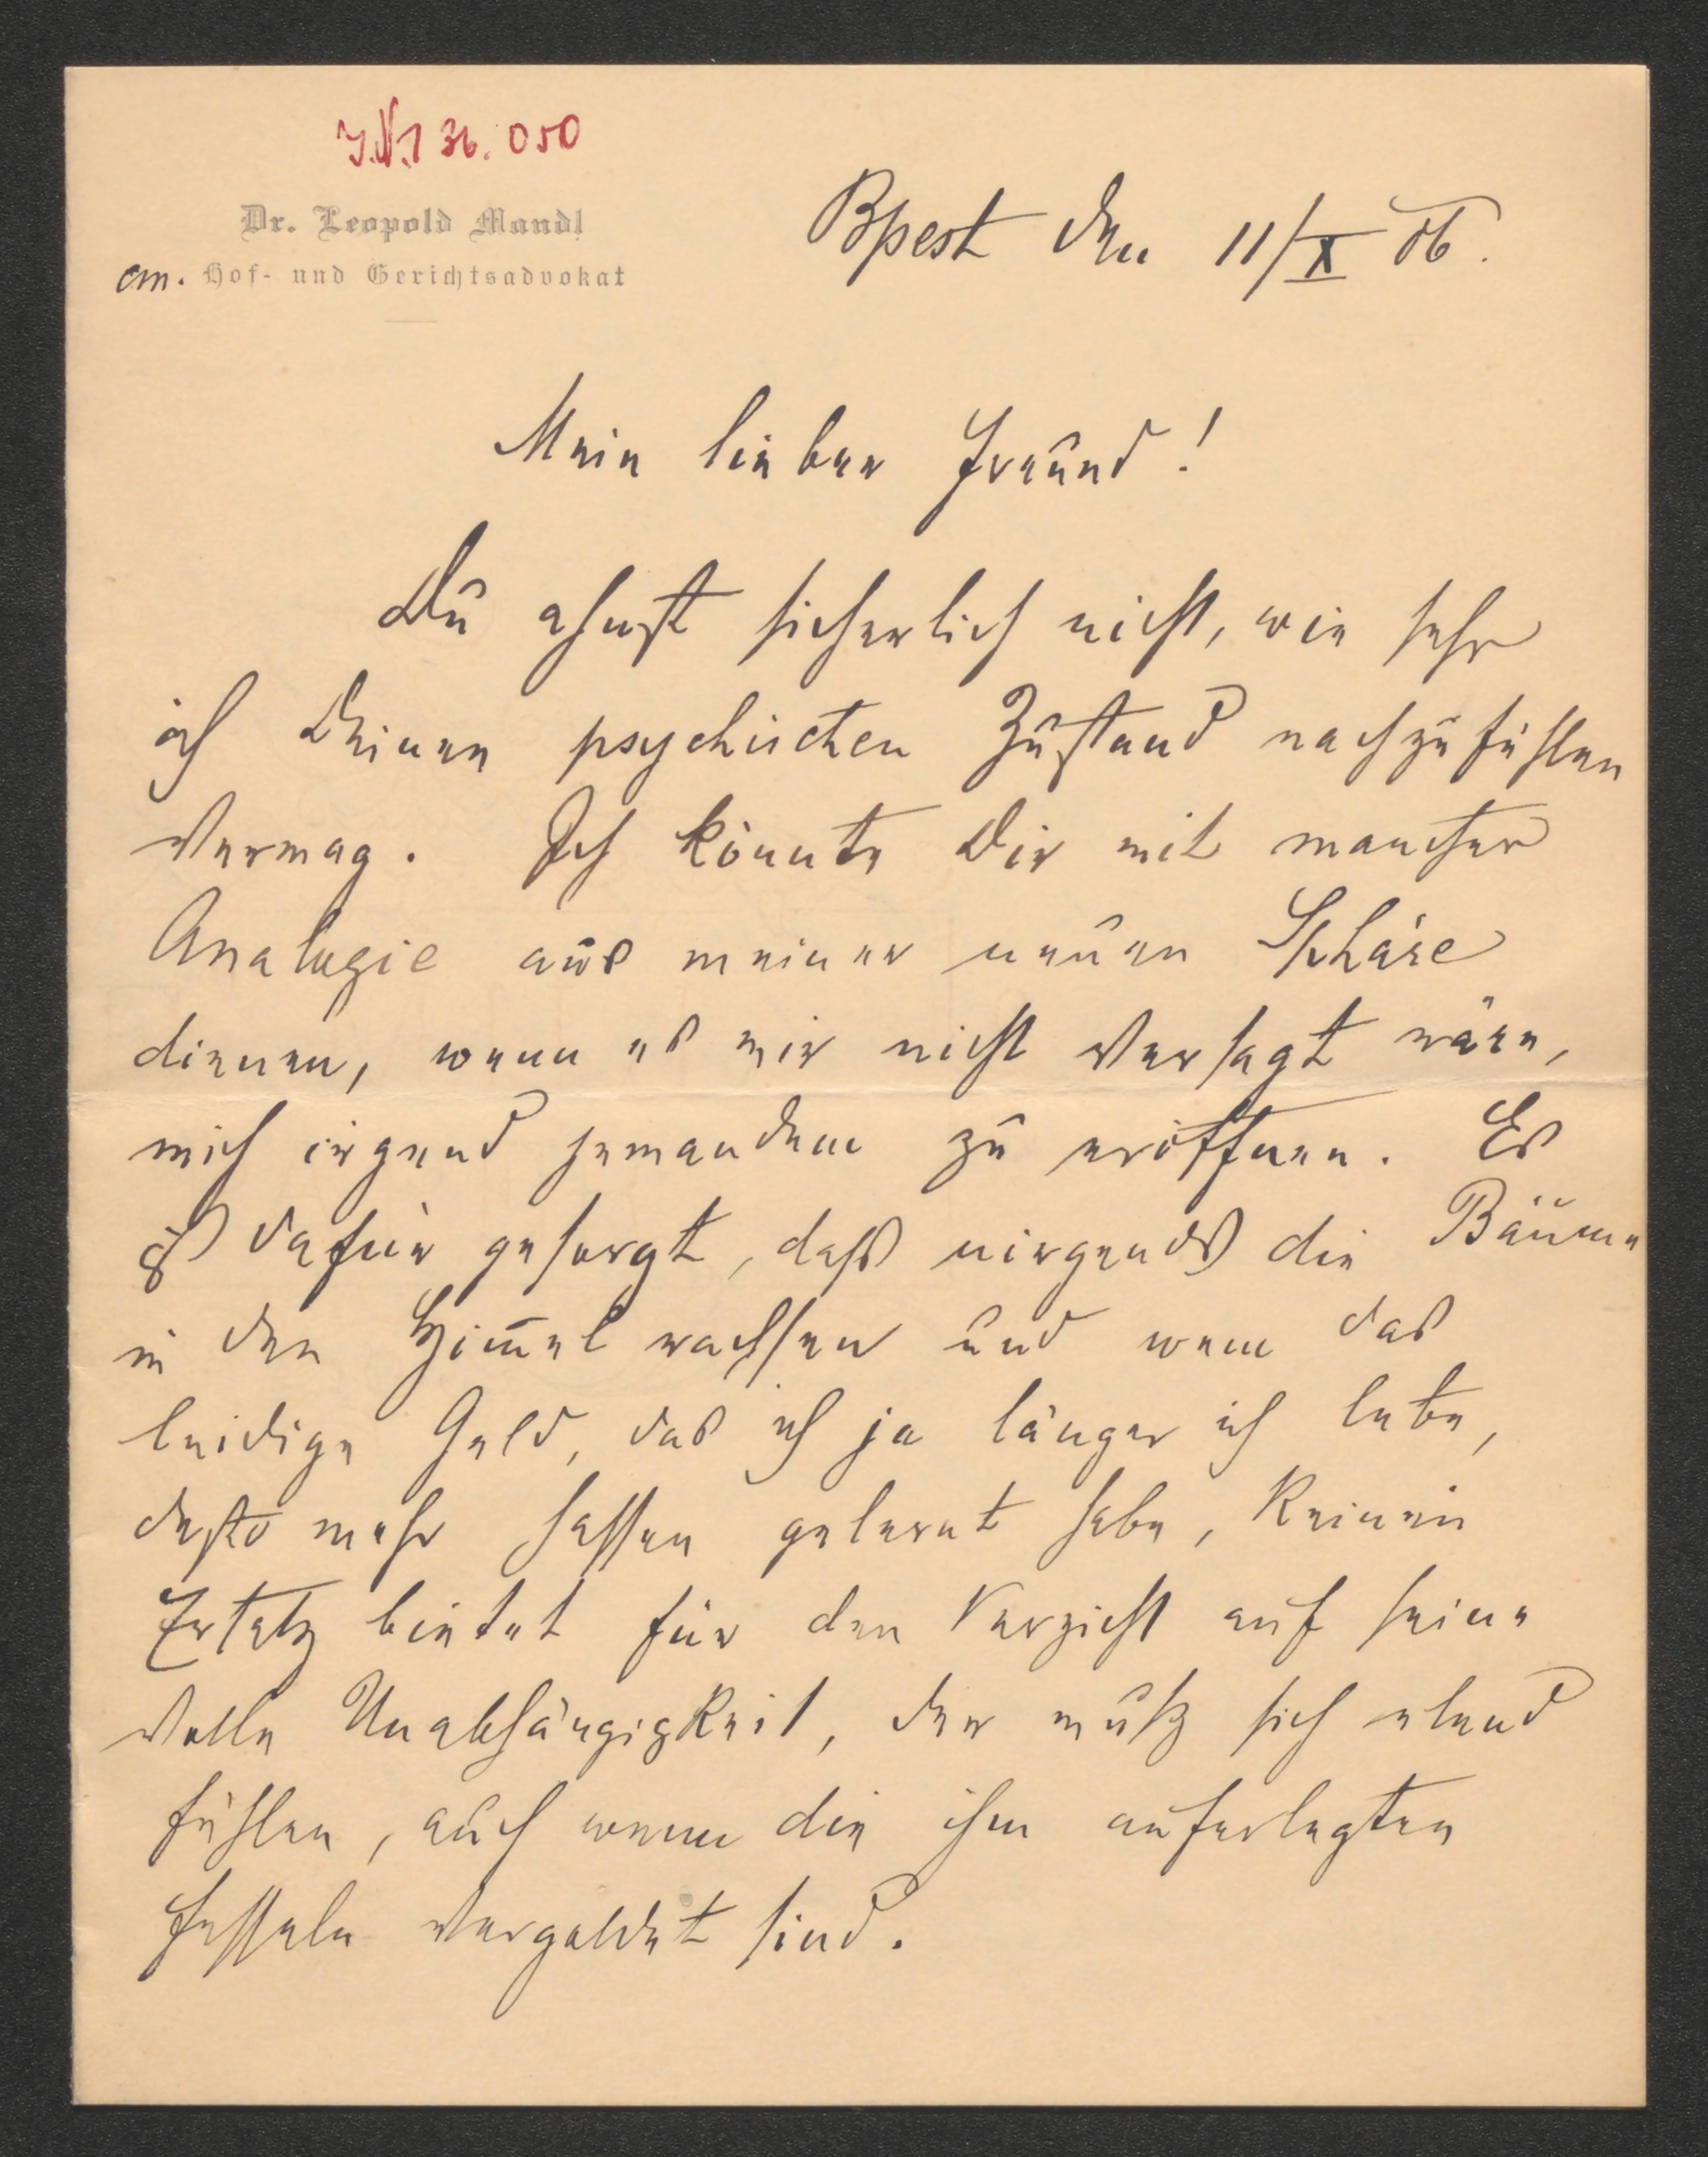 I.N. 136.050
Dr. Leopold Mandl
em. Hof- und Gerichtsadvokat
Bpest den 11/X 06.
Mein lieber Freund!
Du ahnst sicherlich nicht, wie sehr
ich Deinen psychischen Zustand nachzufühlen
vermag. Ich könnte Dir mit mancher
Analogie aus meiner neuen Sphäre
dienen, wenn es mir nicht versagt wäre,
mich irgend jemandem zu eröffnen. Es
ist dafür gesorgt, daß nirgends die Bäume
in den Him̅el wachsen und wem das
leidige Geld, das ich je länger ich lebe,
desto mehr hassen gelernt habe, keinen
Ersatz bietet für den Verzicht auf seine
volle Unabhängigkeit, der muß sich elend
fühlen, auch wenn die ihm auferlegten
Fesseln vergoldet sind.